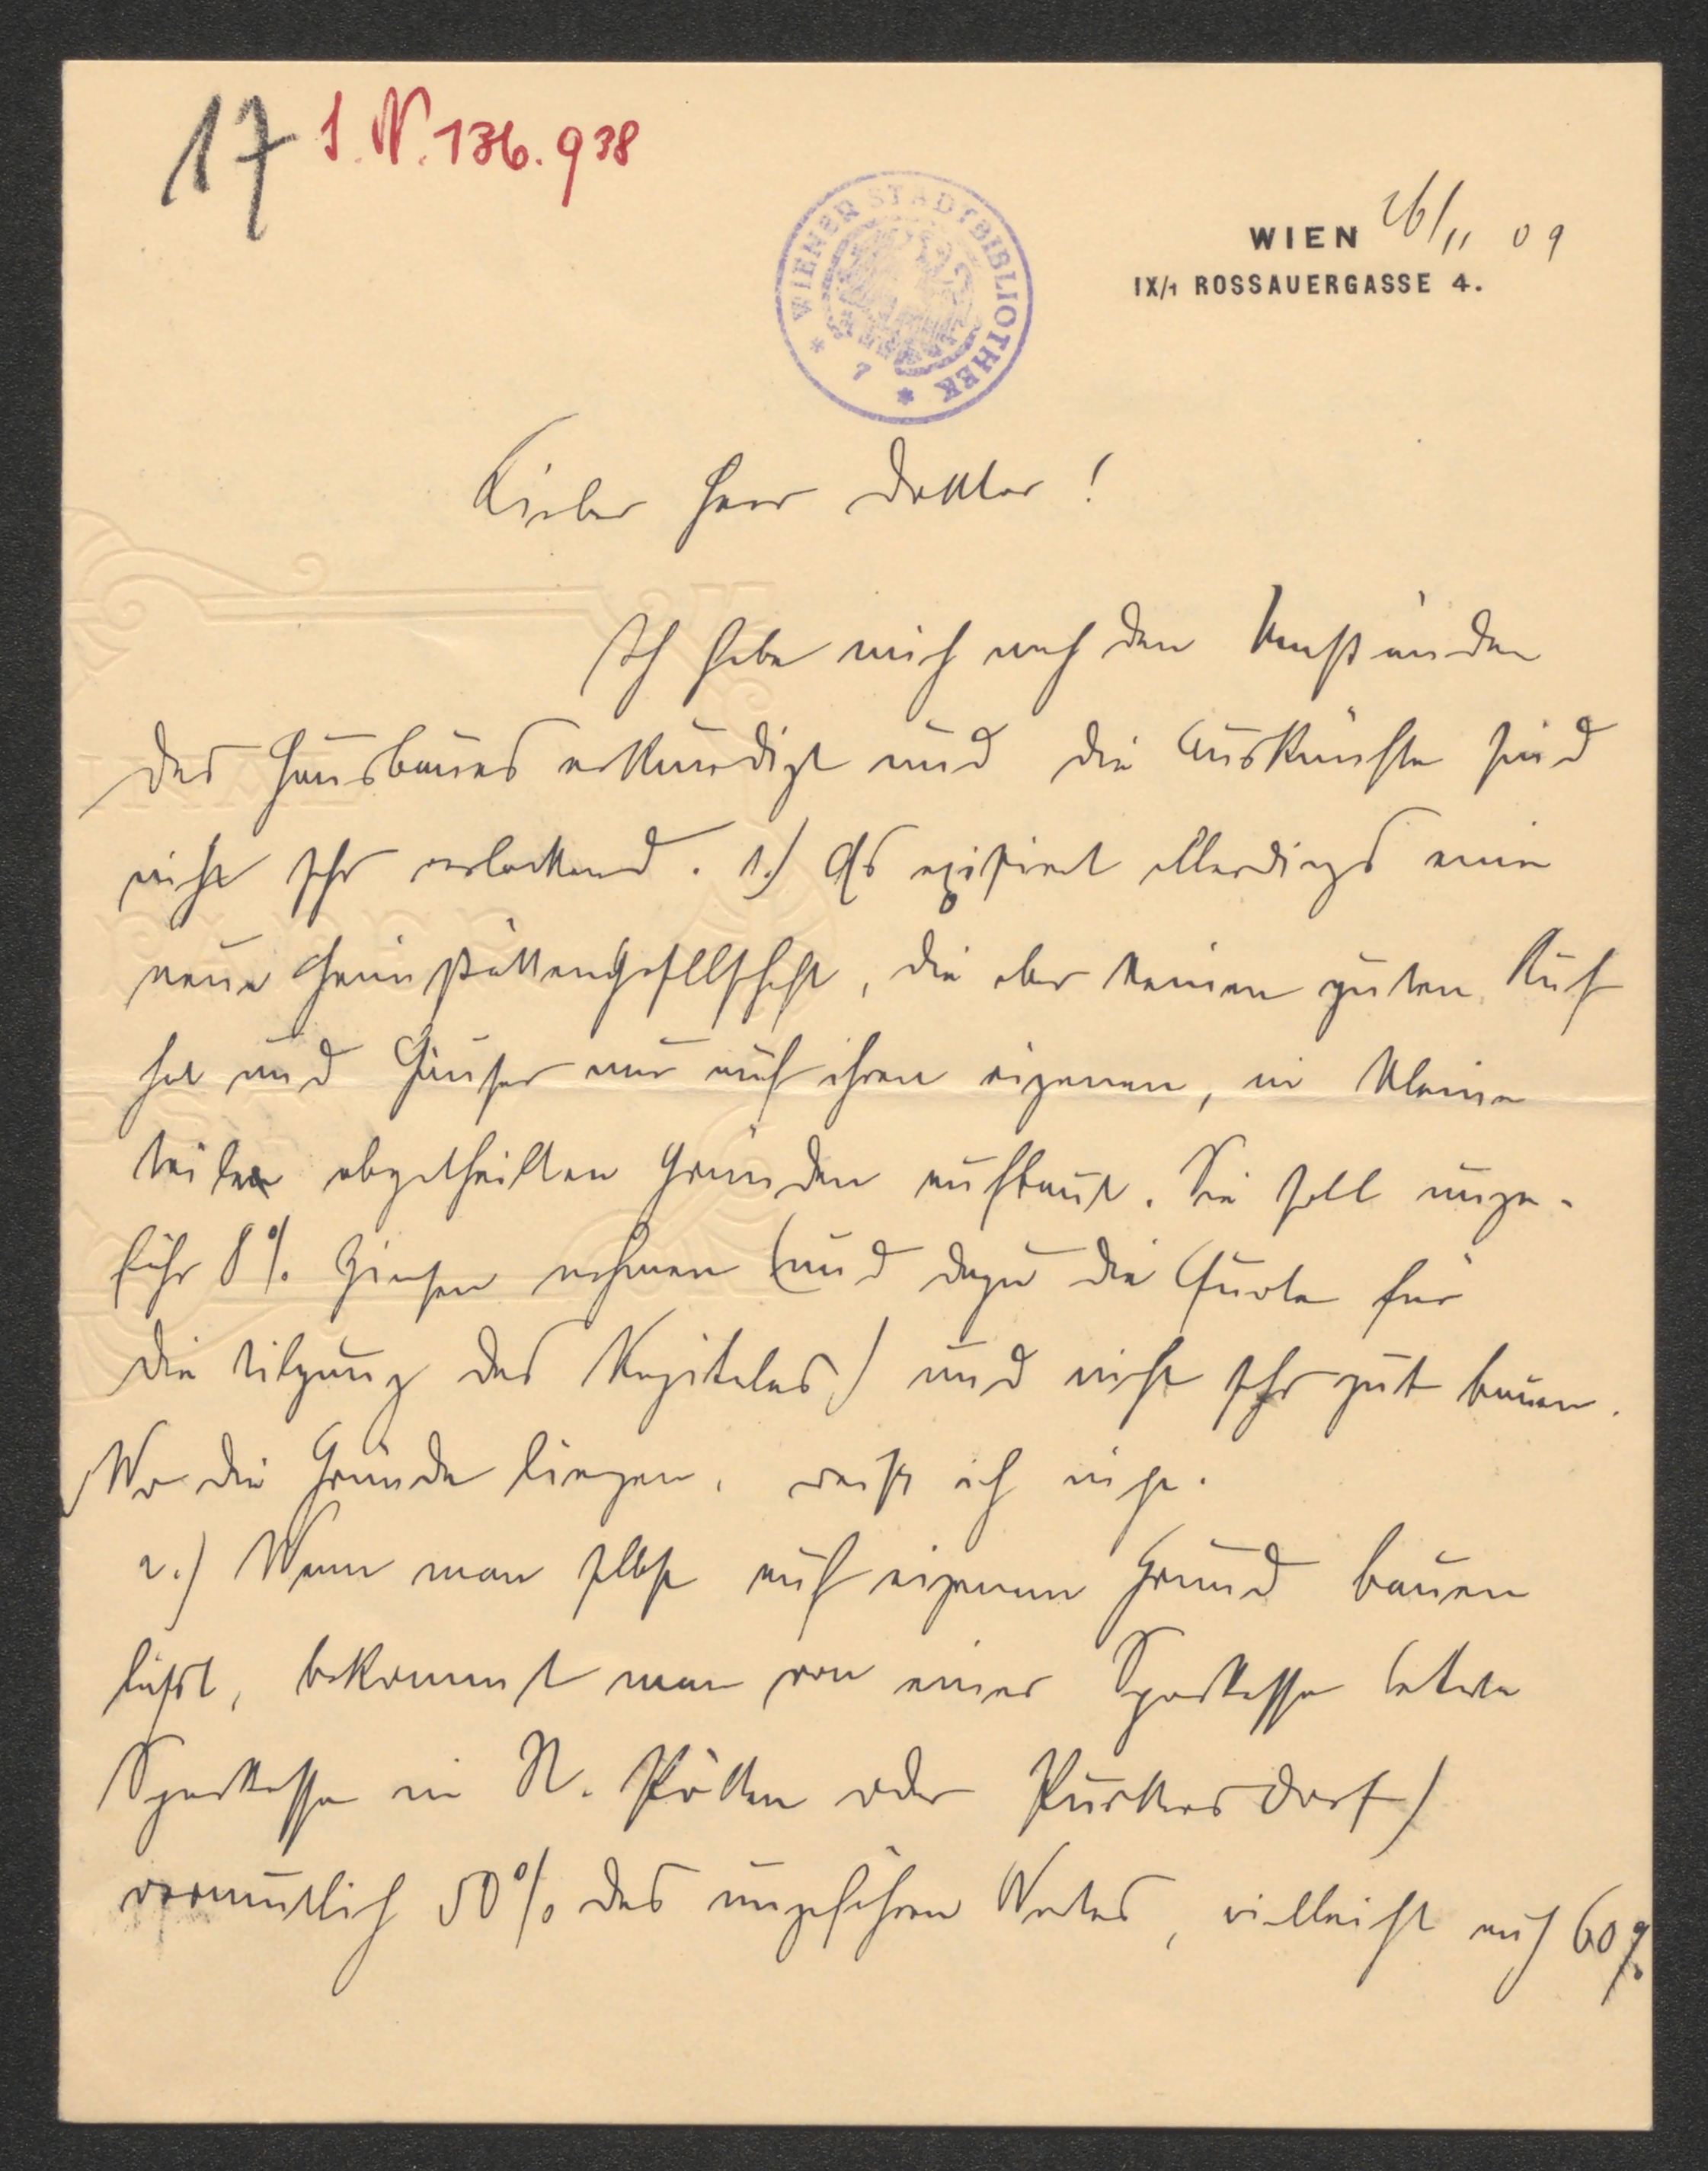 17 I.N. 136.938
WIENER STADTBIBLIOTHEK
WIEN 26/11 09
IX/1 ROSSAUERGASSE 4.
Lieber Herr Doktor!
Ich habe mich nach den Umständen
des Hausbaues erkundigt und die Auskünfte sind
nicht sehr verlockend. 1.) Es existiert allerdings eine
neue Heimstättengesellschaft, die aber keinen guten Ruf
hat und Häuser nur auf ihren eigenen, in kleine
Teile abgetheilten Gründen aufbaut. Sie soll unge-
fähr 8% Zinsen nehmen (und dazu die Quote für
die Tilgung des Kapitales) und nicht sehr gut bauen.
Wo die Gründe liegen, weiß ich nicht.
2.) Wenn man selbst auf eigenem Grund bauen
läßt, bekommt man von einer Sparkasse (etwa
Sparkasse in St. Pölten oder Purkersdorf)
vermutlich 50% des ungefähren Wertes, vielleicht auch 60%